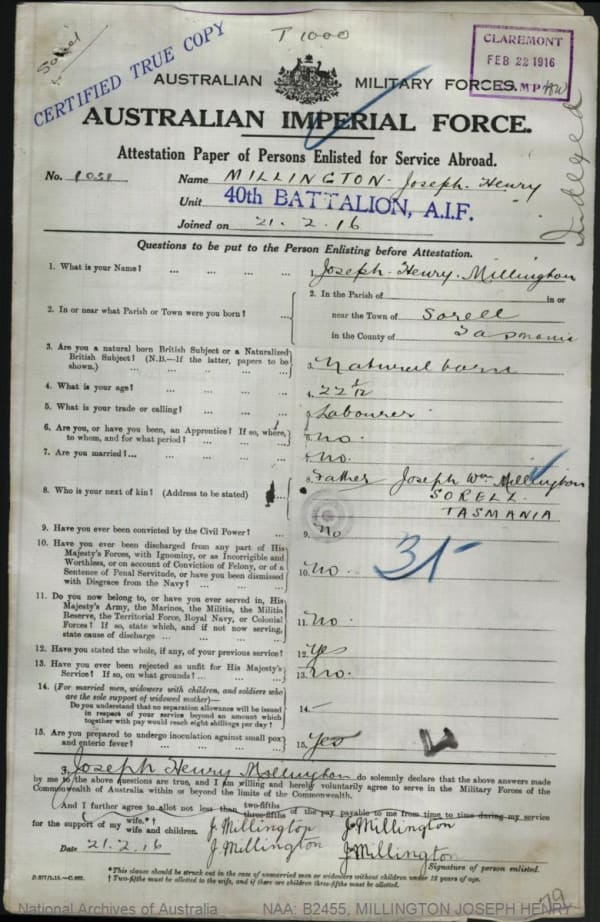 Sorel
CERTIFIED TRUE COPY
T 1000
CLAREMONT
FEB 22 1916
AUSTRALIAN MILITARY FORCES.
AUSTRALIAN IMPERIAL FORCE.
Indexed
Attestation Paper of Persons Enlisted for Service Abroad.
No. 1031 Name MILLINGTON Joseph Henry
Unit 40th BATTALION, A.I.F.
Joined on 21.2.16
Questions to be put to the Person Enlisting before Attestation.
1. What is your Name? ... ... ... ... 1. Joseph Henry Millington
2. In or near what Parish or Town were you born? ... 2. In the Parish of in or
near the Town of Sorell
in the County of Tasmania
3. Are you a natural born British Subject or a Naturalized
British Subject? (N.B.—If the latter, papers to be
shown.) ... ... ... ... 3. Natural born
4. What is your age? ... ... ... ... 4. 22 1/12
5. What is your trade or calling? ... ... ... 5. Labourer
6. Are you, or have you been, an Apprentice? If so, where,
to whom, and for what period? ... ... ... 6. no.
7. Are you married? ... ... ... ... 7. No.
8. Who is your next of kin? (Address to be stated) 8. Father Joseph Wm Millington
SORELL
TASMANIA
9. Have you ever been convicted by the Civil Power? ... 9. No
10. Have you ever been discharged from any part of His
Majesty's Forces, with Ignominy, or as Incorrigible and
Worthless, or on account of Conviction of Felony, or of a
Sentence of Penal Servitude, or have you been dismissed
with Disgrace from the Navy? ... ... ... 10. no.
11. Do you now belong to, or have you ever served in, His
Majesty's Army, the Marines, the Militia, the Militia
Reserve, the Territorial Force, Royal Navy, or Colonial
Forces? If so, state which, and if not now serving,
state cause of discharge ... ... ... ... 11. No.
12. Have you stated the whole, if any, of your previous service? 12. Yes
13. Have you ever been rejected as unfit for His Majesty's
Service? If so, on what grounds? ... ... ... 13. no.
14. (For married men, widowers with children, and soldiers who
are the sole support of widowed mother)—
Do you understand that no separation allowance will be issued
in respect of your service beyond an amount which
together with pay would reach eight shillings per day? 14. —
15. Are you prepared to undergo inoculation against small pox
and enteric fever? ... ... ... ... 15. Yes
I, Joseph Henry Millington do solemnly declare that the above answers made
by me to the above questions are true, and I am willing and hereby voluntarily agree to serve in the Military Forces of the
Commonwealth of Australia within or beyond the limits of the Commonwealth.
And I further agree to allot not less than two-fifths three-fifths of the pay payable to me from time to time during my service
for the support of my wife.*† wife and children. J Millington J Millington
Date 21.2.16 J Millington J Millington
Signature of person enlisted.
*This clause should be struck out in the case of unmarried men or widowers without children under 18 years of age.
† Two-fifths must be allotted to the wife, and if there are children three-fifths must be allotted.
National Archives of Australia NAA: B2455, MILLINGTON JOSEPH HENRY